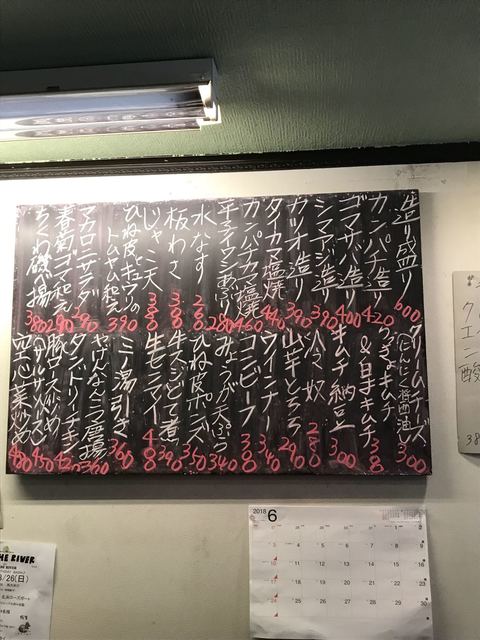 造り盛り 600
カンパチ造り 420
ゴマサバ造り 400
シマアジ造り 390
カツオ造り 390
タイカマ塩焼 440
カンパチカマ塩焼 460
平天
水なす 280
板わさ 380
じゃこ天 380
ひね皮とキュウリの
トムヤム和え 390
マカロニサラダ 280
春菊ゴマ和え 290
ちくわ磯部揚 380
クリームチーズ
(にんにく醤油) 300
らっきょキムチ
&白キムチ 380
キムチ納豆 300
冷奴 280
山芋とろろ 290
ウインナー 340
コンビーフ 380
みょうが天ぷら 340
ひね皮ポン酢 350
生スジどて煮 390
生センマイ 480
ミノ湯引き 360
やげんなんこつ唐揚 360
タンドリーチキン 420
豚ロース炒め
(サルサソース) 450
空心菜炒め 480
2018
6
THE RIVER
/26(日)